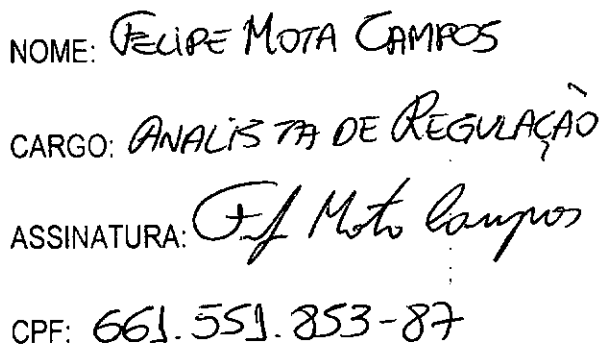 NOME: FELIPE MOTA CAMPOS
CARGO: ANALISTA DE REGULAÇÃO
ASSINATURA: Felipe Mota Campos
CPF: 661.551.853-87